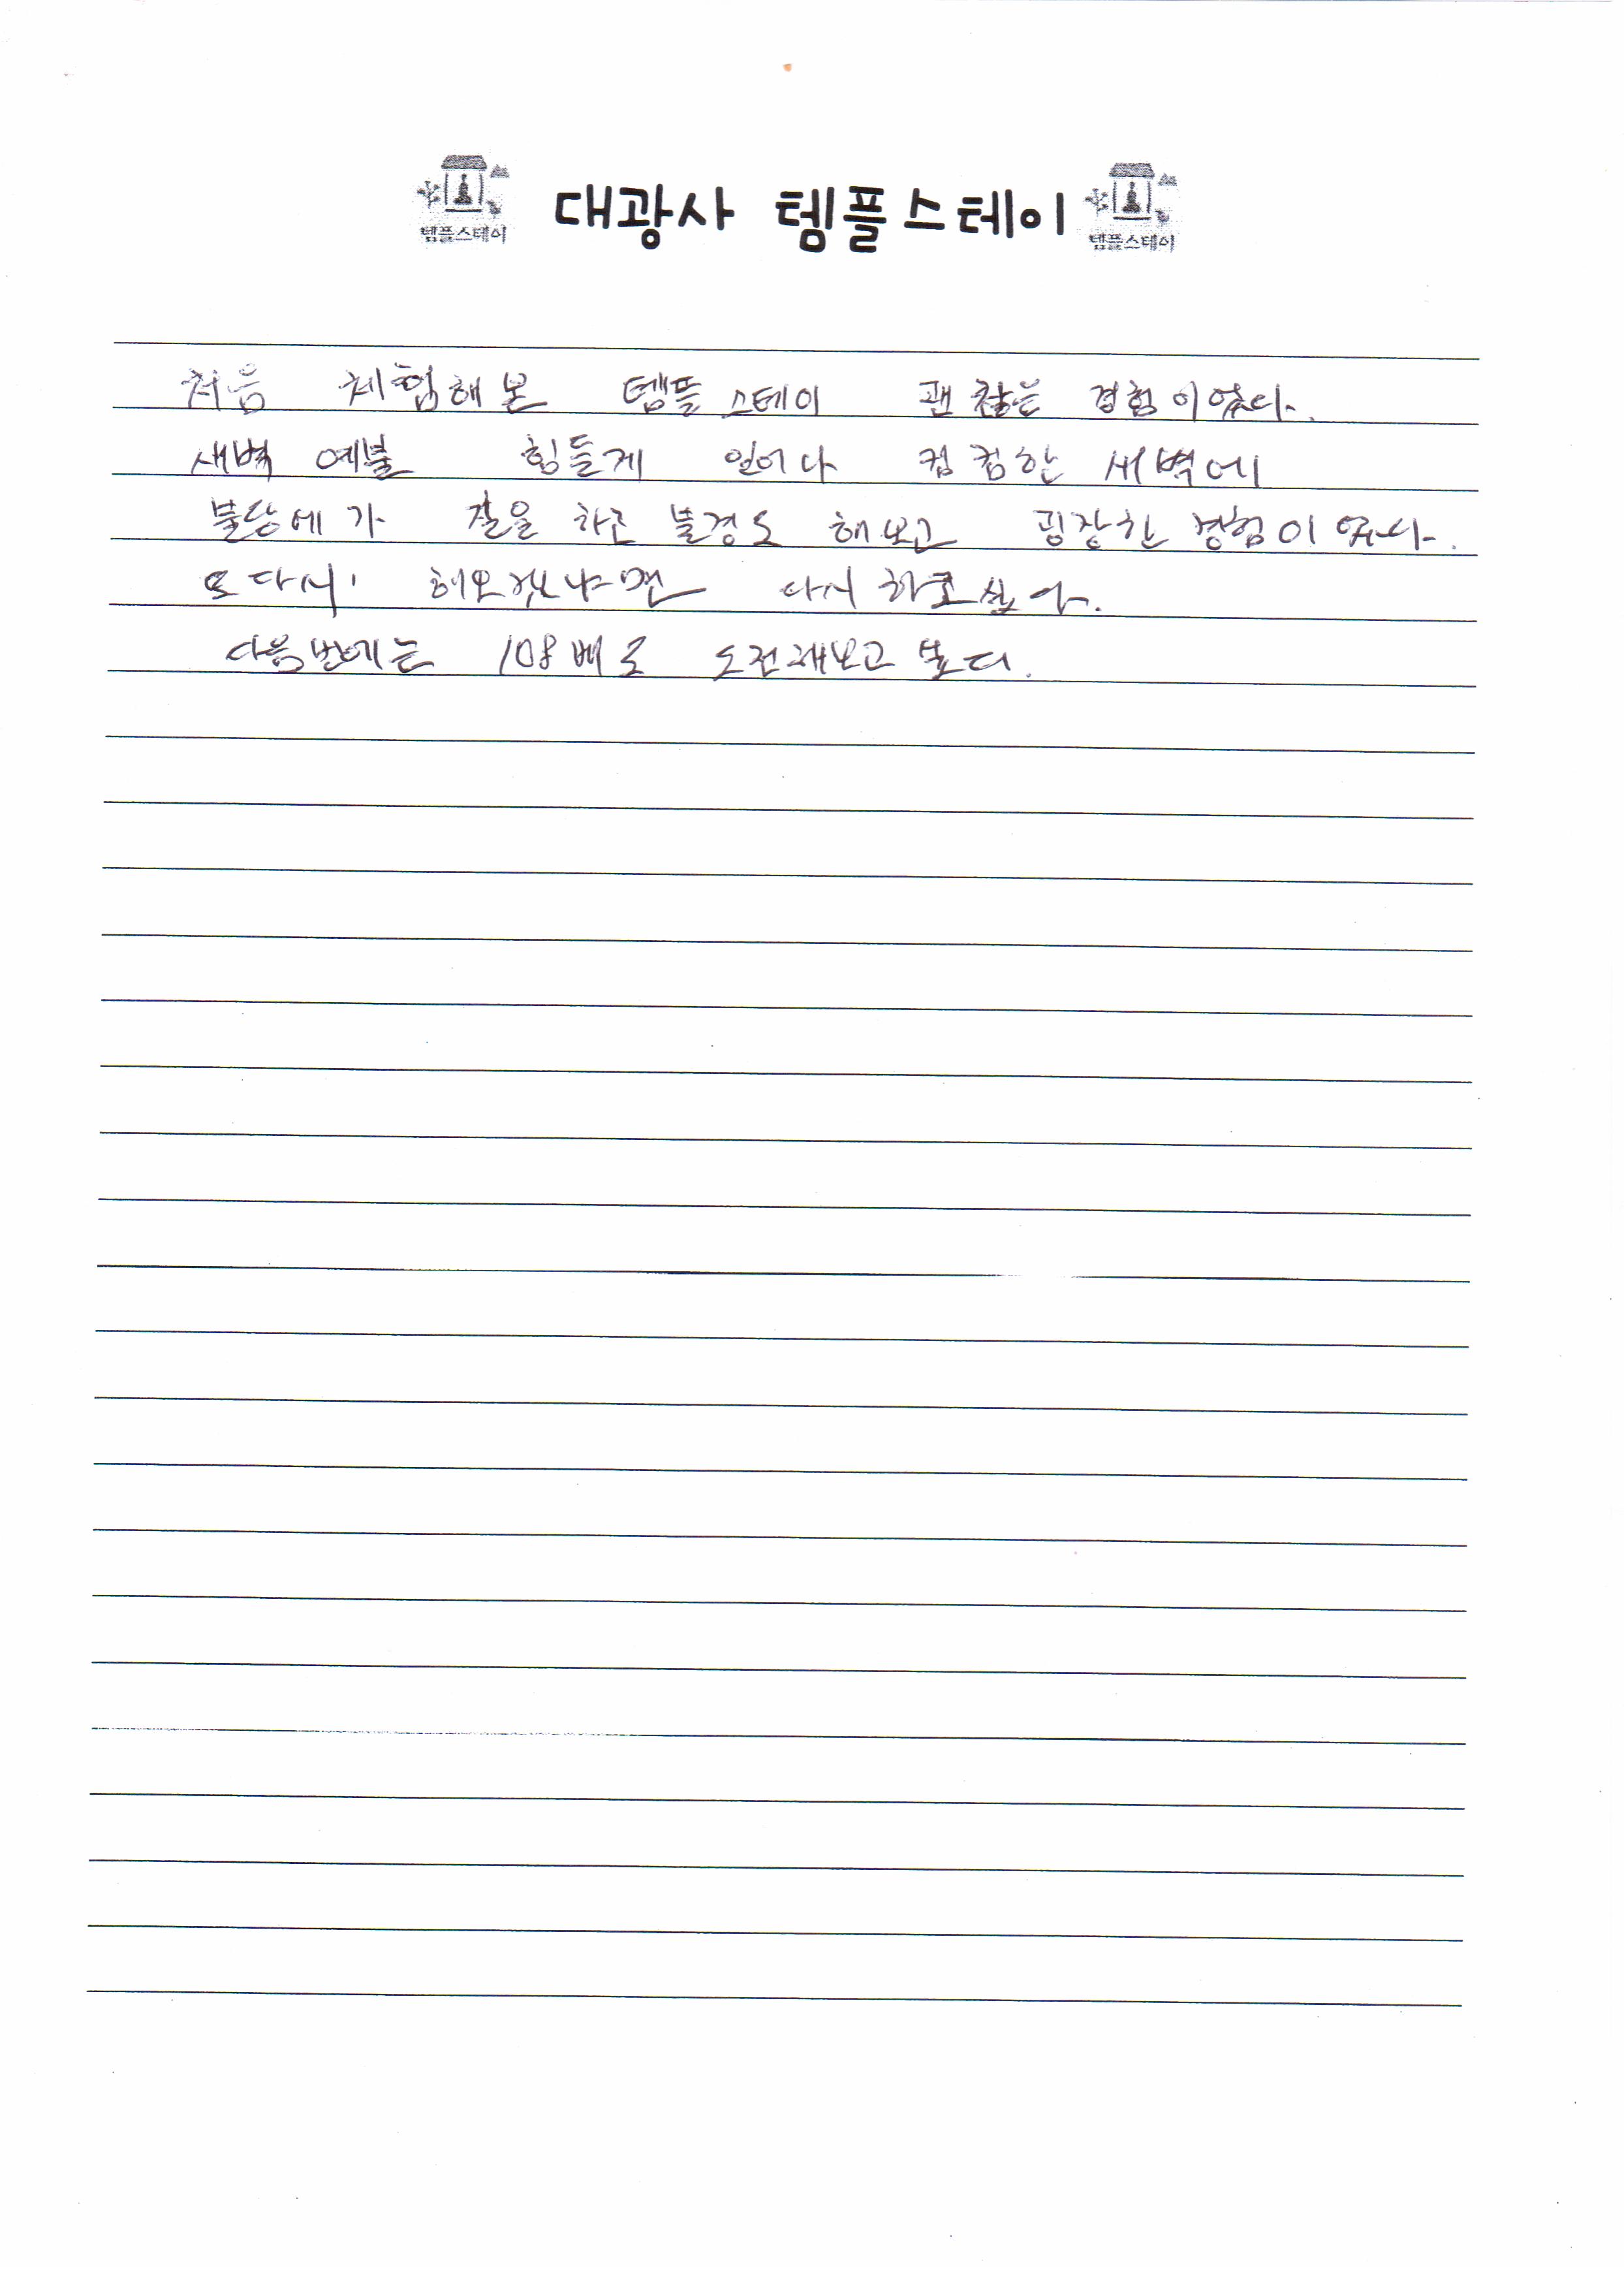 템플스테이 대광사 템플스테이 템플스테이
처음 체험해본 템플스테이 괜찮은 경험이었다.
새벽 예불 힘들게 일어나 컴컴한 새벽에
불당에가 절을 하고 불경도 해보고 굉장한 경험이였다.
또다시 해보겠냐면 다시 하고싶다.
다음번에는 108배로 도전해보고 싶다.